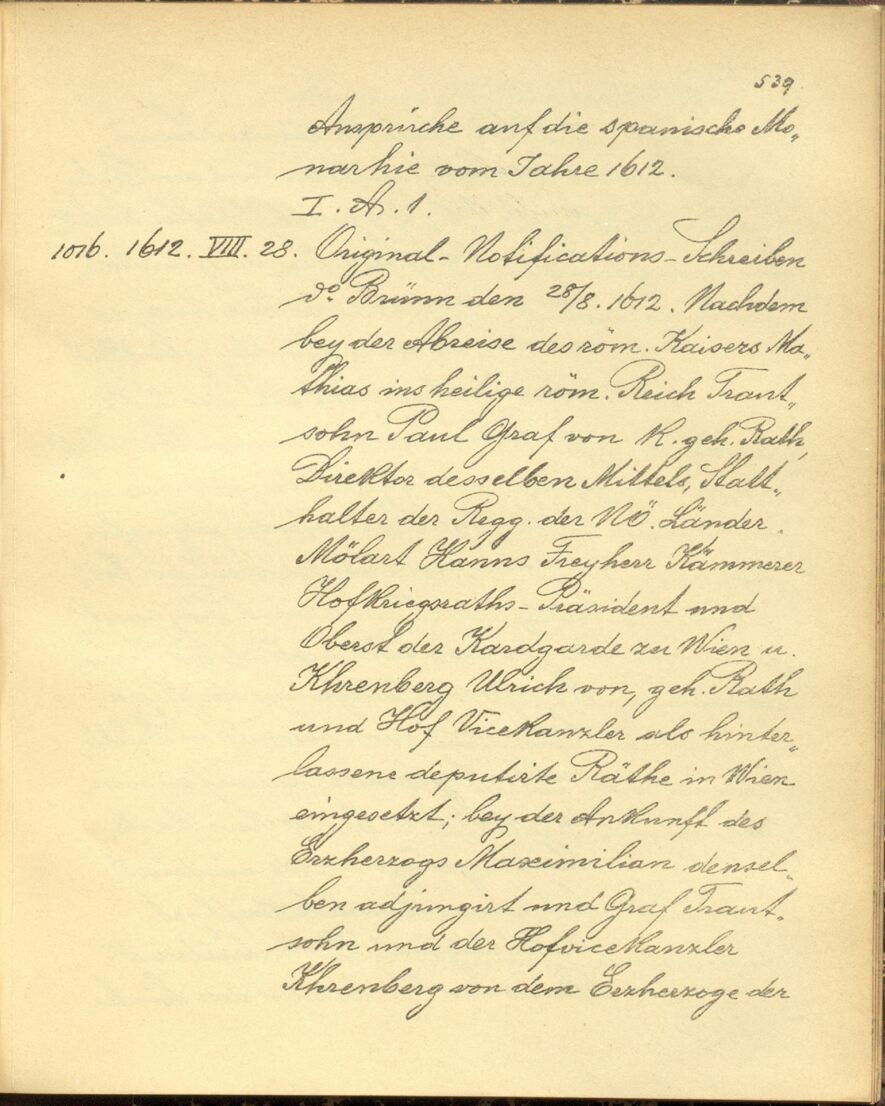 539
Ansprüche auf die spanische Mo„
narhie vom Jahre 1612.
I. A. 1.
1016. 1612. VIII. 28. Original-Notifications-Schreiben
do. Brünn den 28/8. 1612. Nachdem
bey der Abreise des röm. Kaisers Ma„
thias ins heilige röm. Reich Traut„
sohn Paul Graf von K. geh. Rath,
Direktor desselben Mittels, Statt„
halter der Regg. der NÖ. Länder.
Mölart Hanns Freyherr Kämmerer
Hofkriegsraths-Präsident und
Oberst der Kardgarde zu Wien u.
Khrenberg Ulrich von, geh. Rath
und Hof Vicekanzler als hinter„
lassene deputirte Räthe in Wien
eingesetzt; bey der Ankunft des
Erzherzogs Maximilian densel„
ben adjungirt und Graf Traut„
sohn und der Hofvicekanzler
Khrenberg von dem Erzherzoge der